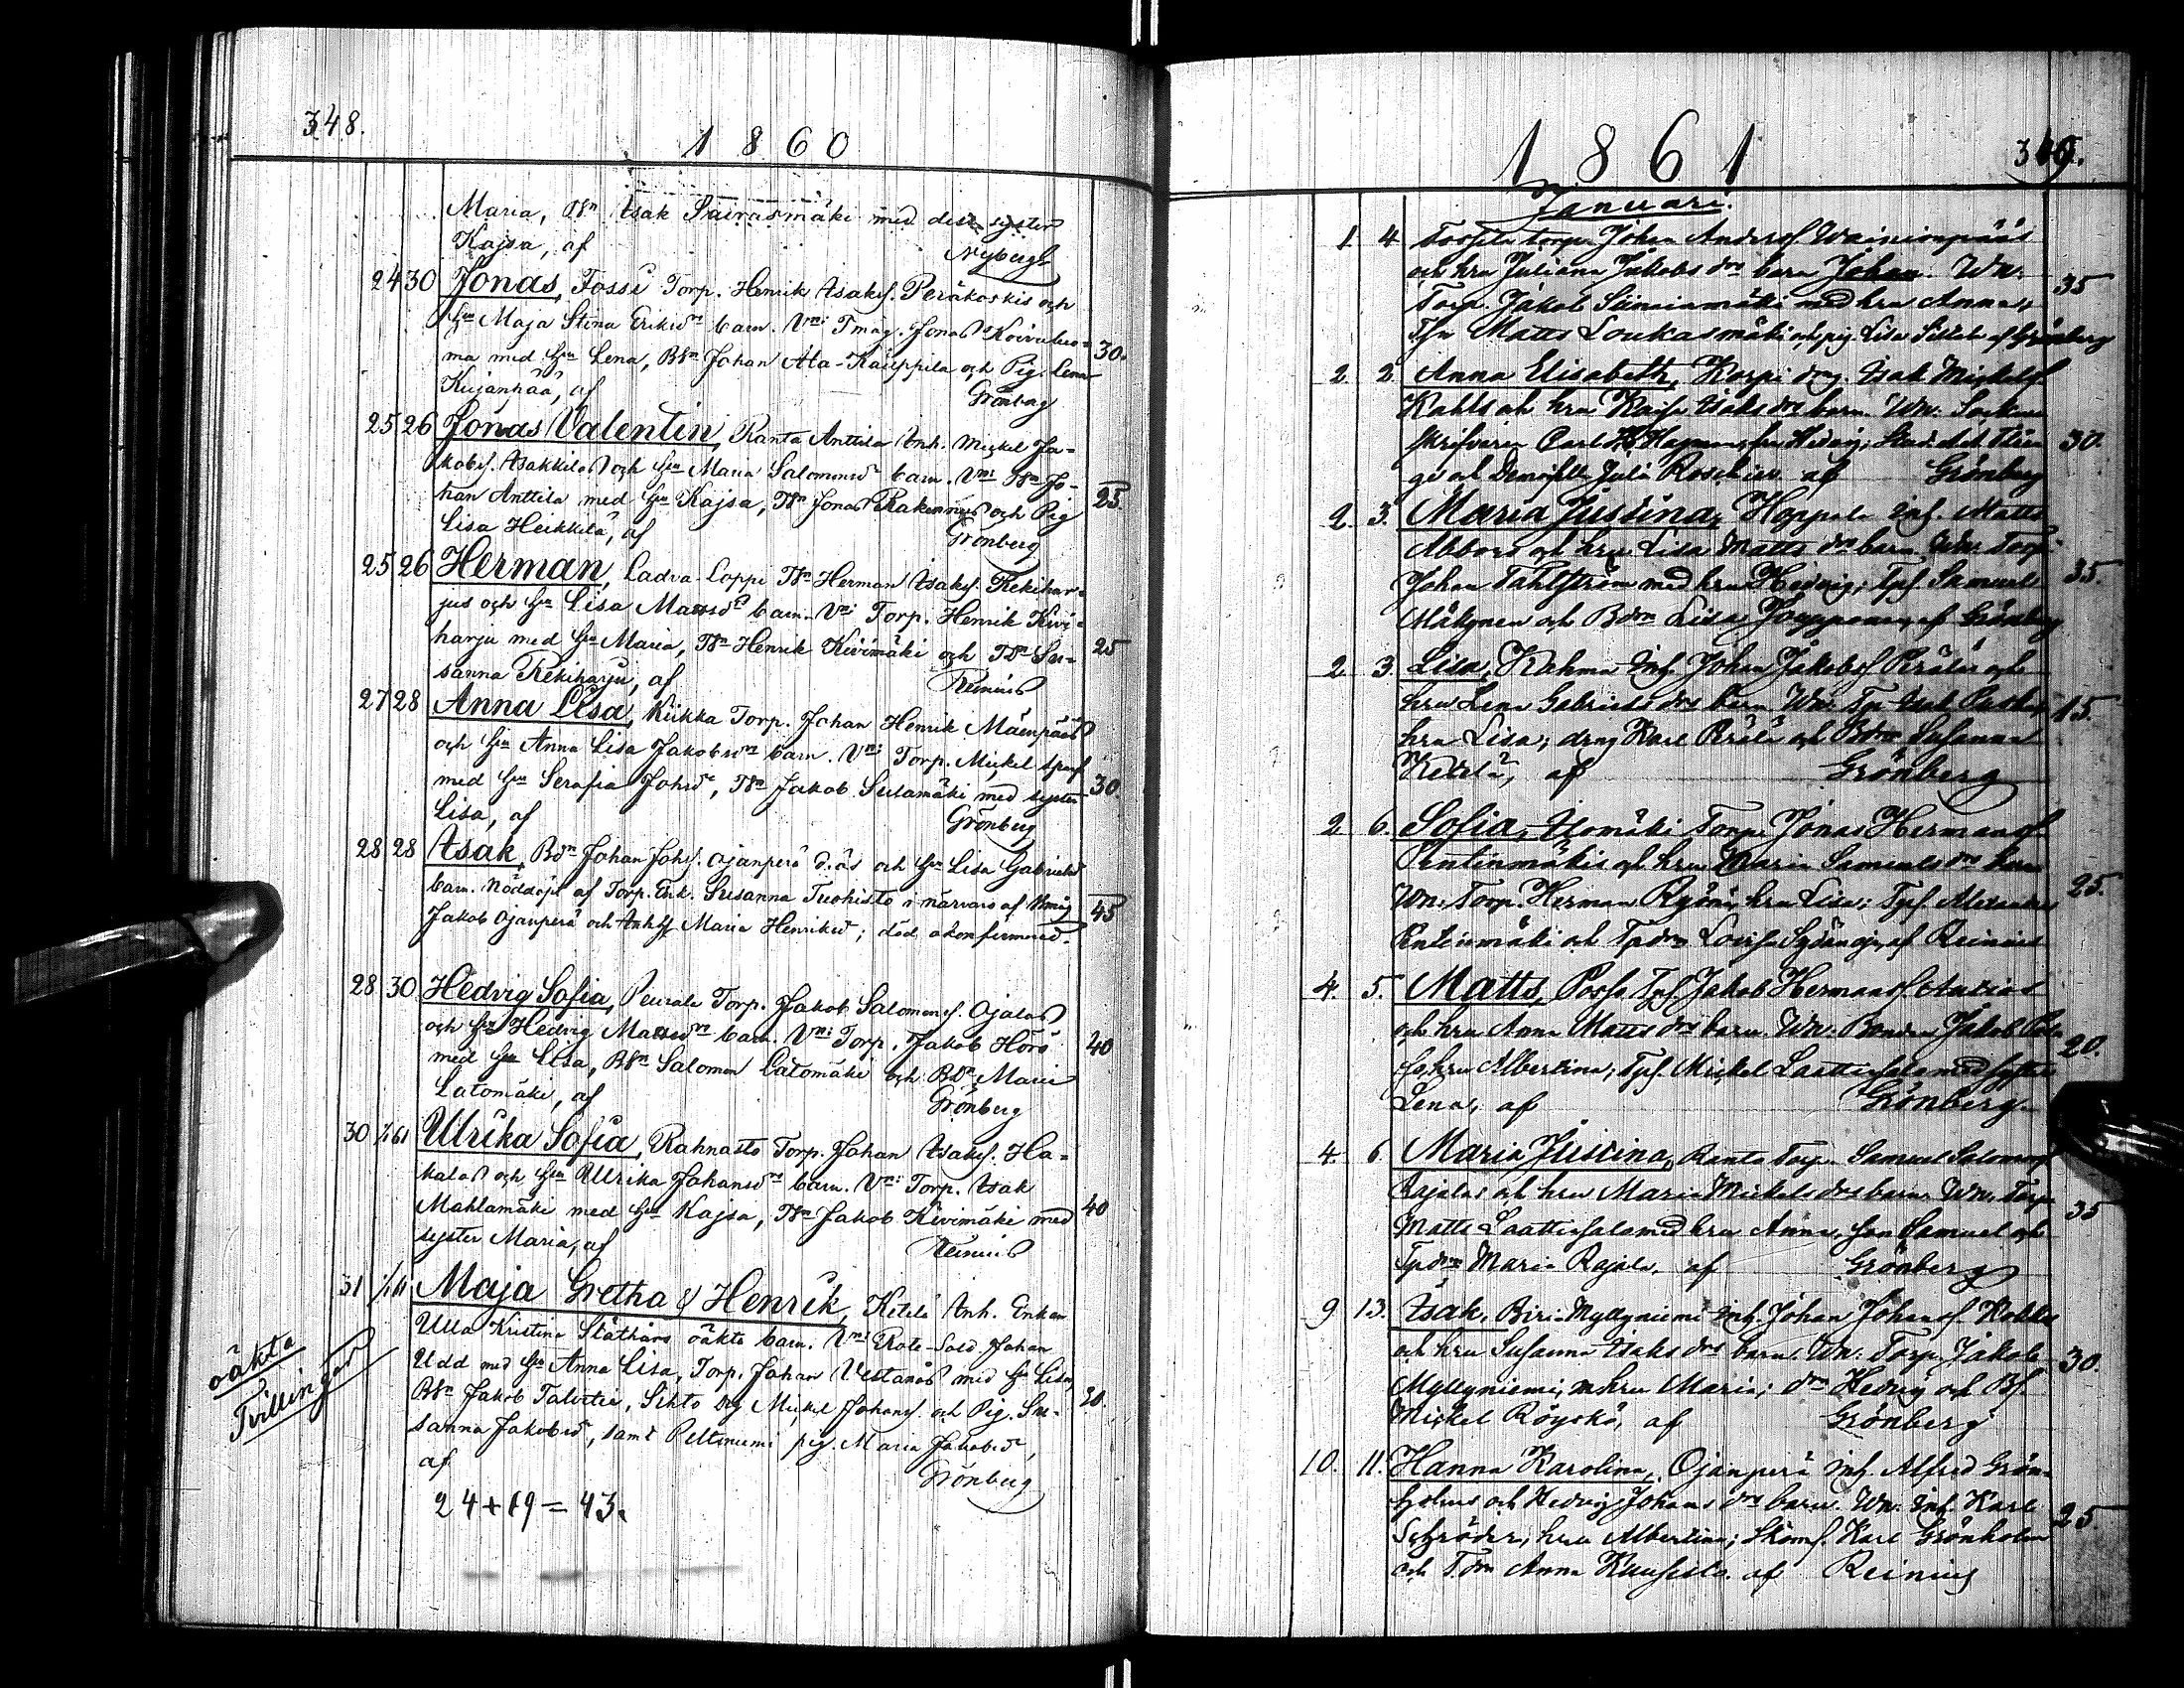 348.
1860
Maria, Bsn Isak Sairasmäki med dess syster
Kajsa, af Nyberg
24 30 Jonas, Fossi Torp. Henrik Isaksf. Peräkoskis och
hu Maja Stina Eriksdr barn. Vni Tmåg. Jonas Koivuluo-
ma med hu Lena, Bsn Johan Ala-Kauppila och Pig. Lena 30.
Kujanpää, af Grönberg
25 26 Jonas Valentin, Ranta Anttila Inh. Mickel Ja-
kobsf. Isakkilas och hu Maria Salomonsdr barn. Vni Bsn Jo-
han Anttila med hu Kajsa, Tsn Jonas Rakennus och Pig 25.
Lisa Heikkilä, af Grönberg
25 26 Herman, Ladva-Loppi Tsn Herman Isaksf. Rekihar-
jus och hu Lisa Mattsdr barn. Vni Torp. Henrik Kivi-
harju med hu Maria, Tsn Henrik Kivimäki och Tdr Su- 25
sanna Rekiharju, af Reinius
27 28 Anna Lisa, Kukka Torp. Johan Henrik Mäenpääs
och hu Anna Lisa Jakobsdr barn. Vni Torp. Mickel
med hu Serafia Johsdr, Tsn Jakob Sulamäki med syster 30.
Lisa, af Grönberg
28 28 Isak, Bdn Johan Johsf. Ojanperä d.äs och hu Lisa Gabrielsd
barn. Nöddöpt af Torp. Enk. Susanna Tuohisto i närvaro af
Jakob Ojanperä och Maria Henriksd; död okonfirmerad. 45
28 30 Hedvig Sofia, Peurala Torp. Jakob Salomonsf. Ojalas
och hu Hedvig Mattsdr barn. Vni Torp. Jakob Horo 40
med hu Lisa, Bsn Salomon Latomäki och Bdr Maria
Latomäki, af Grönberg
30 1/1 61 Ulrika Sofia, Rahnasto Torp. Johan Isaksf. Ha-
kalas och hu Ulrika Johansdr barn. Vni Torp. Isak
Mahlamäki med hu Kajsa, Tsn Jakob Kivimäki med 40
syster Maria, af Reinius
31 1/1 61 Maja Gretha & Henrik, Ketelä Inh. Enkan
Ulla Kristina Ståthårs oäkta barn. Vni Rote-Sold. Johan
oäkta
Tvillingar
Udd med hu Anna Lisa, Torp. Johan Vestanås med hu Lisa,
Bsn Jakob Talvitie, Sihto Drg Mickel Johansf. och Pig. Su- 30.
sanna Jakobsd, samt Peltoniemi pig. Maria Jakobsdr,
af Grönberg
24 + 19 = 43.
1861
349.
Januari.
1. 4. Torpila torpn Johan Andersf. Wainionpääs
och hru Juliana Jakobs drs barn Johan. Wn:
Torp. Jakob mäki med hru Anna; 35
Matts Loukasmäki och pig. Lisa af Grönberg
2. 2. Anna Elisabeth, Karpi drg. Isak Mickelsf.
och hru Kaisa Isaks drs barn. Wn: Socken
skrifvaren Carl Hagman, fru Hedvig; Stud. 30.
och Demoiselle Julia Roschier. af Grönberg
2. 3. Maria Justina, Hoppala inh. Matts
Abbors och hru Lisa Matts drs barn. Wn: Torp.
Johan Tahlström med hru Hedvig; Tps. Samuel 35.
Mäkynen och Bdrn Lisa, af Grönberg
2. 3. Lisa, Kahma inh. Johan Jakobsf. Perälä och
hru Lena Gabriels drs barn. Wn: Tpr Isak 15.
hru Lisa; dräng Karl Perälä och Bdrn Susanna
Ketelä, af Grönberg
2. 6. Sofia, Isomäki Torp. Jonas Hermansf.
Pentinmäkis och hru Maria Samuels drs barn.
Wn: Torp. Herman hru Lisa; Tps. Alexander 25.
Pentinmäki och Tpdrn Lovisa af Reinius
4. 5. Matts, Tps. Jakob Hermansf.
och hru Anna Matts drs barn. Wn: Bonden Jakob
hru Albertina; Tps. Mickel med syster 20.
Lena, af Grönberg.
4. 6. Maria Justina, Ranta Torp. Samuel Salomonsf.
Rajalas och hru Maria Mickels drs barn. Wn: Torp.
Matts med hru Anna, son Samuel och 35
Tpdrn Maria Rajala, af Grönberg
9. 13. Isak, Biri-Myllyniemi inh. Johan Johansf.
och hru Susanna Isaks drs barn. Wn: Torp. Jakob 30.
Myllyniemi, m. hru Maria; drn Hedvig och Bs.
Mickel Röyskö, af Grönberg
10. 11. Hanna Karolina, Ojanperä inh. Alfred Grön-
holms och Hedvig Johans drs barn. Wn: inh. Karl
Schröder, hru Albertina; Karl Grönholm 25.
och Tdrn Anna Kuusisto. af Reinius